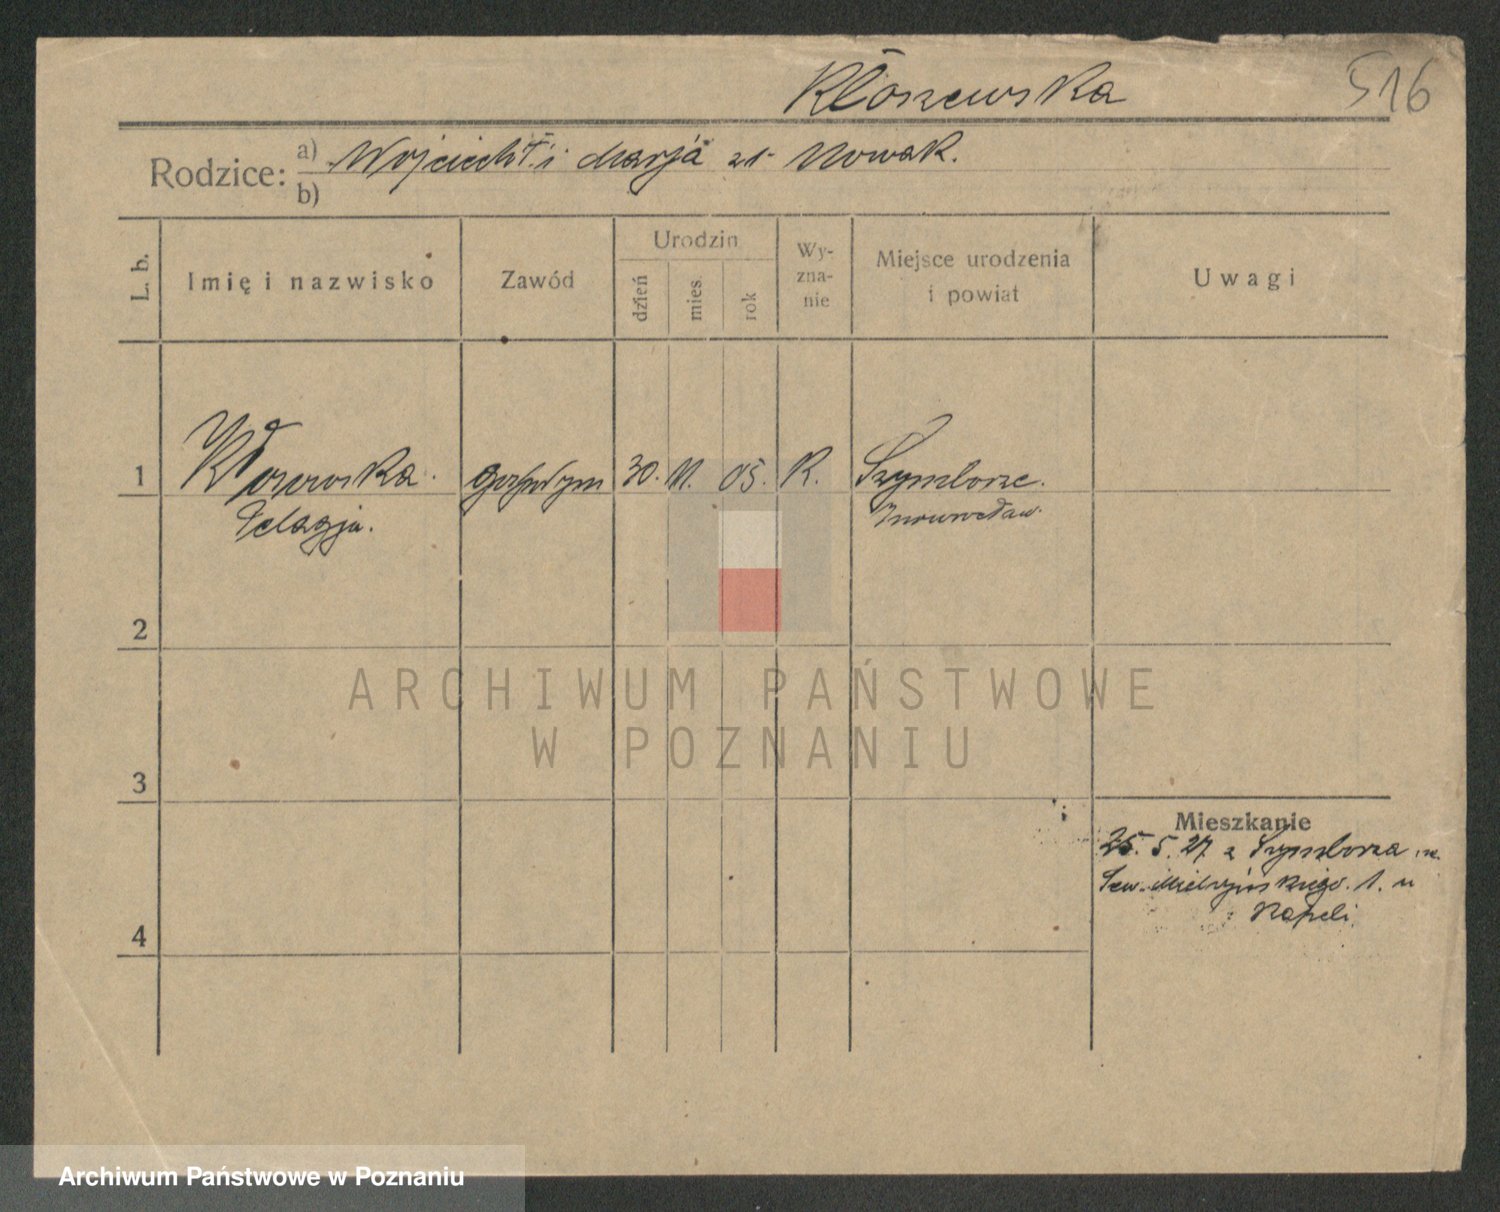 Kłoszewska
516
Rodzice: a) Wojciech † i Marja zd. Nowak.
b)
L. b.
Imię i nazwisko
Zawód
Urodzin
dzień
mies.
rok
Wy-
zna-
nie
Miejsce urodzenia
i powiat
Uwagi
1
Pelagja.
30.
05.
K.
Szymborze.
Inowrocław.
2
3
4
ARCHIWUM PAŃSTWOWE
W POZNANIU
Mieszkanie
25. 5. 27 z Szymborza
Sew. Mielżyńskiego. 1. u
Kapeli
Archiwum Państwowe w Poznaniu